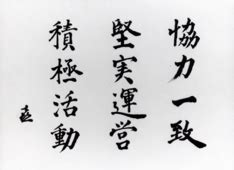 協力一致
堅実運営
積極活動